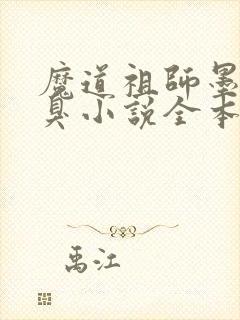 魔道祖師墨
臭小説全本
禹江